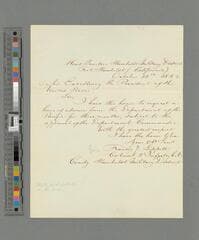 Head Quarters Humboldt Military District
Fort Humboldt, California
October 20th 1862
His Excellency the President of the
United States
Sir,
I have the honor to request a
leave of absence from the Department of the
Pacific for three months, subject to the
approval of the Department Commander.
With the greatest respect
I have the honor to be
Your Obt Servt
Francis J. Lippitt
Colonel 2d Infantry C.V.
Comdg Humboldt Military District